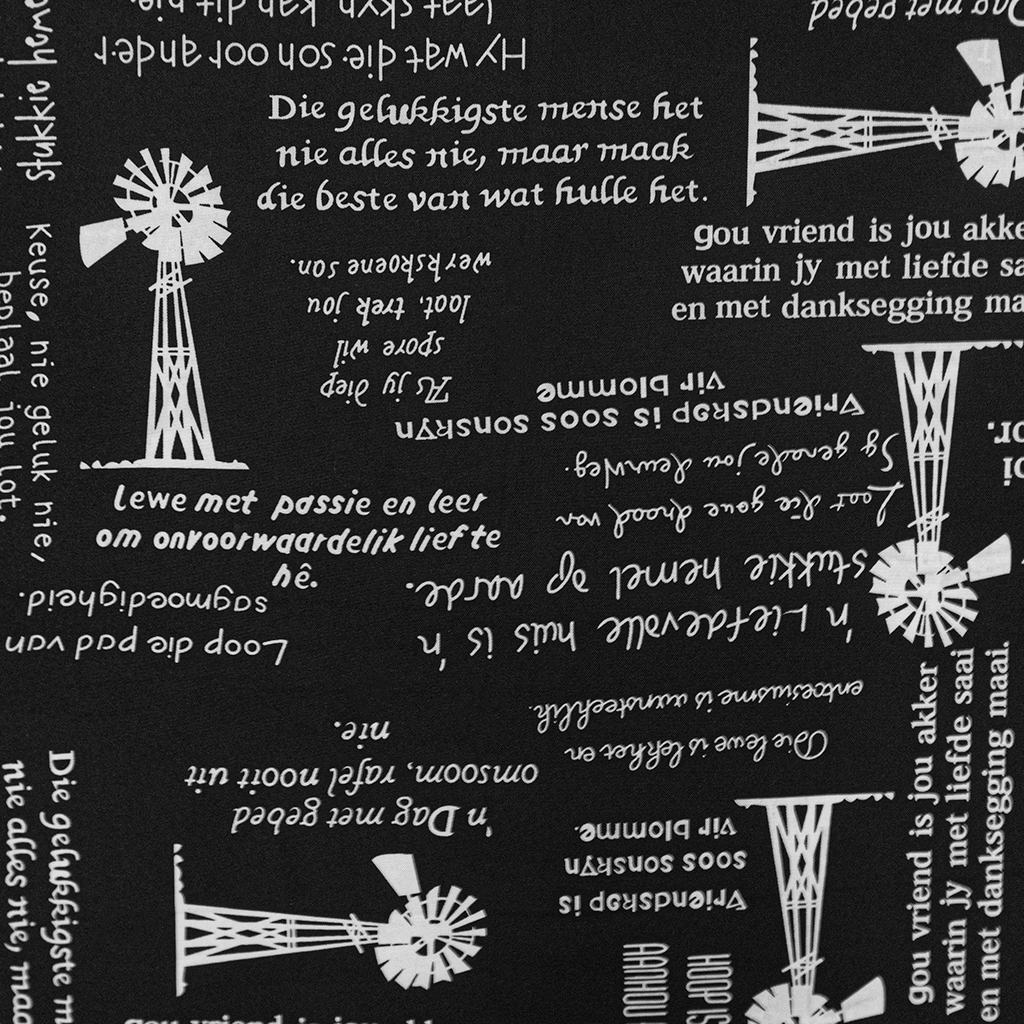 laat skyn kan dit nie
Hy wat die son oor ander
Dag met gebed
Die gelukkigste mense het
nie alles nie, maar maak
die beste van wat hulle het.
gou vriend is jou akke
waarin jy met liefde sa
en met danksegging ma
As jy diep
spore wil
laat, trek jou
werkskoene aan.
Vriendskap is soos sonskyn
vir blomme
Laat die goue draad van
Sy genade jou deurweg.
'n Liefdevolle huis is 'n
stukkie hemel op aarde.
Lewe met passie en leer
om onvoorwaardelik lief te
hê.
Loop die pad van
sagmoedigheid.
Keuse, nie geluk nie,
bepaal jou lot.
stukkie
Die lewe is lekker en
entoesiasme is aansteeklik.
'n Dag met gebed
omsoom, rafel nooit uit
nie.
Vriendskap is
soos sonskyn
vir blomme.
gou vriend is jou akker
waarin jy met liefde saai
en met danksegging maai.
Die gelukkigste m
nie alles nie, maa
HOOP IS
AANHOU
gou vriend is jou akk